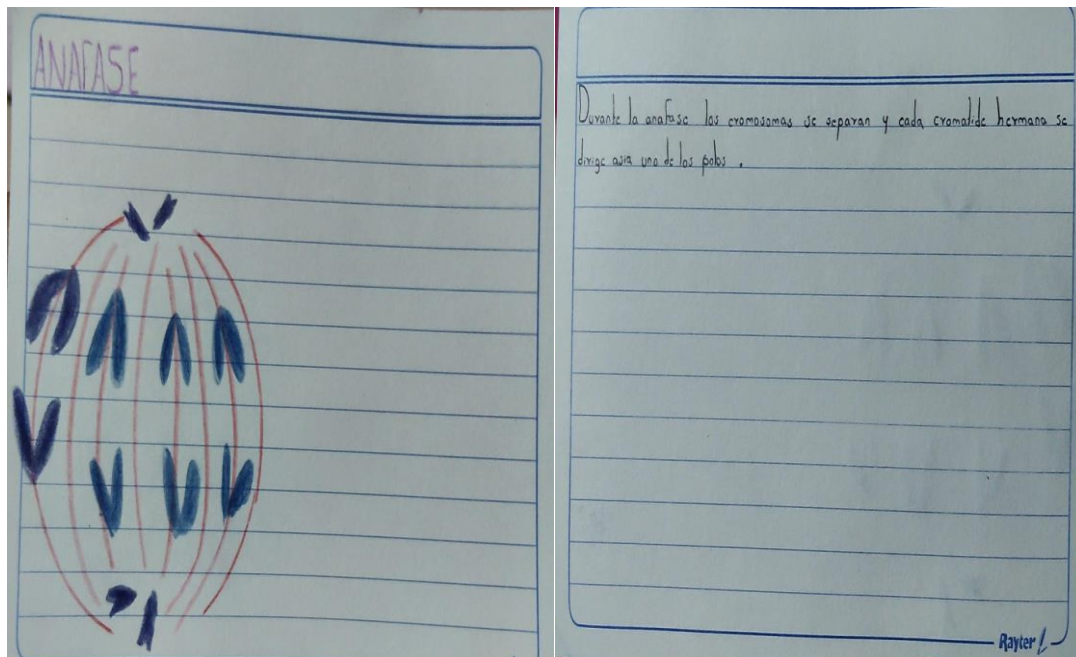 ANAFASE
Durante la anafase los cromosomas se separan y cada cromatide hermana se
dirige asia uno de los polos .
Rayter